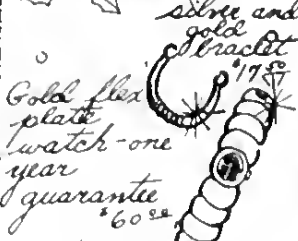 silver and
gold
braclet
$17.50
Gold flex
plate
watch-one
year
guarantee
$60.00